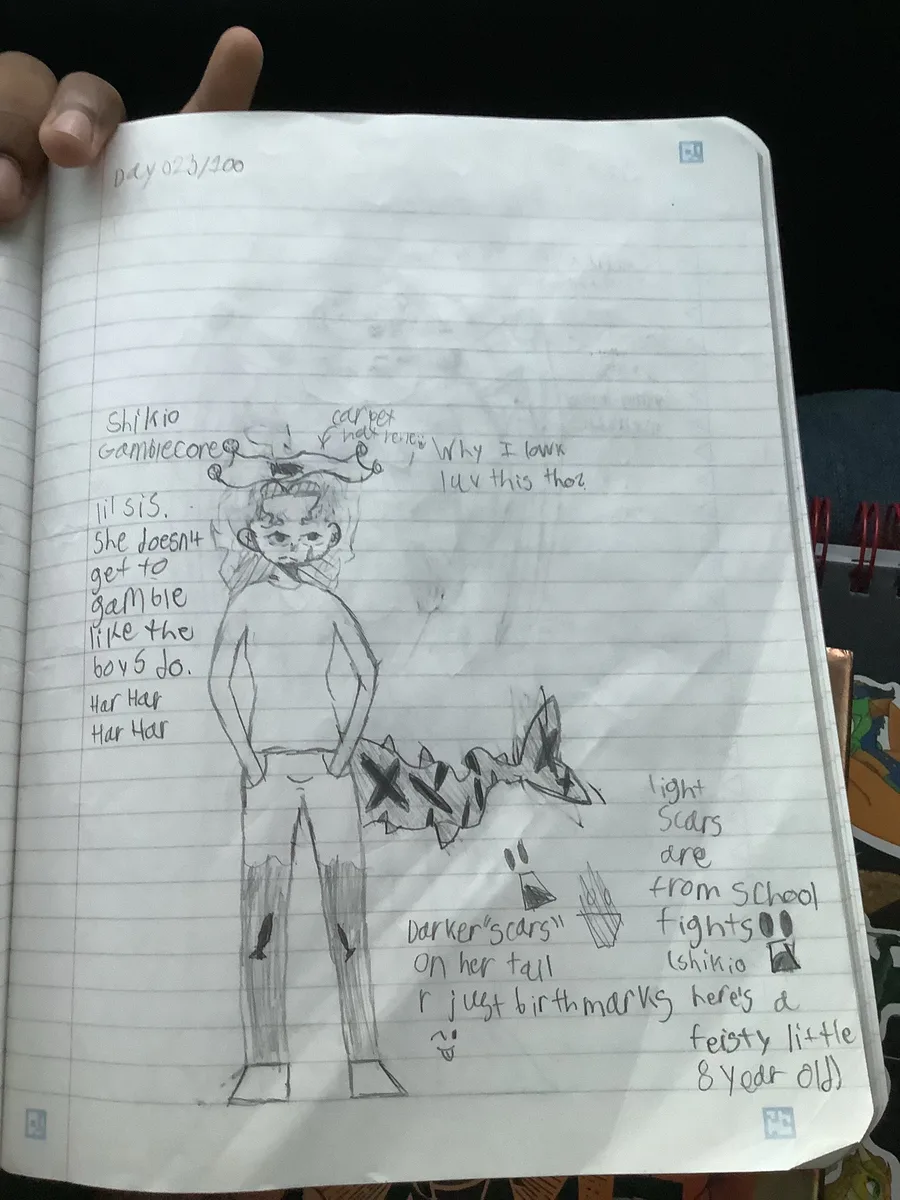 Day 023/100
Shikio
Gamblecore
carpet
hat hehe
Why I lowk
luv this tho?
lil sis.
She doesn't
get to
gamble
like the
boys do.
Har Har
Har Har
light
Scars
are
from School
fights
(shikio
here's a
feisty little
8 year old)
Darker "scars"
on her tail
r just birthmarks